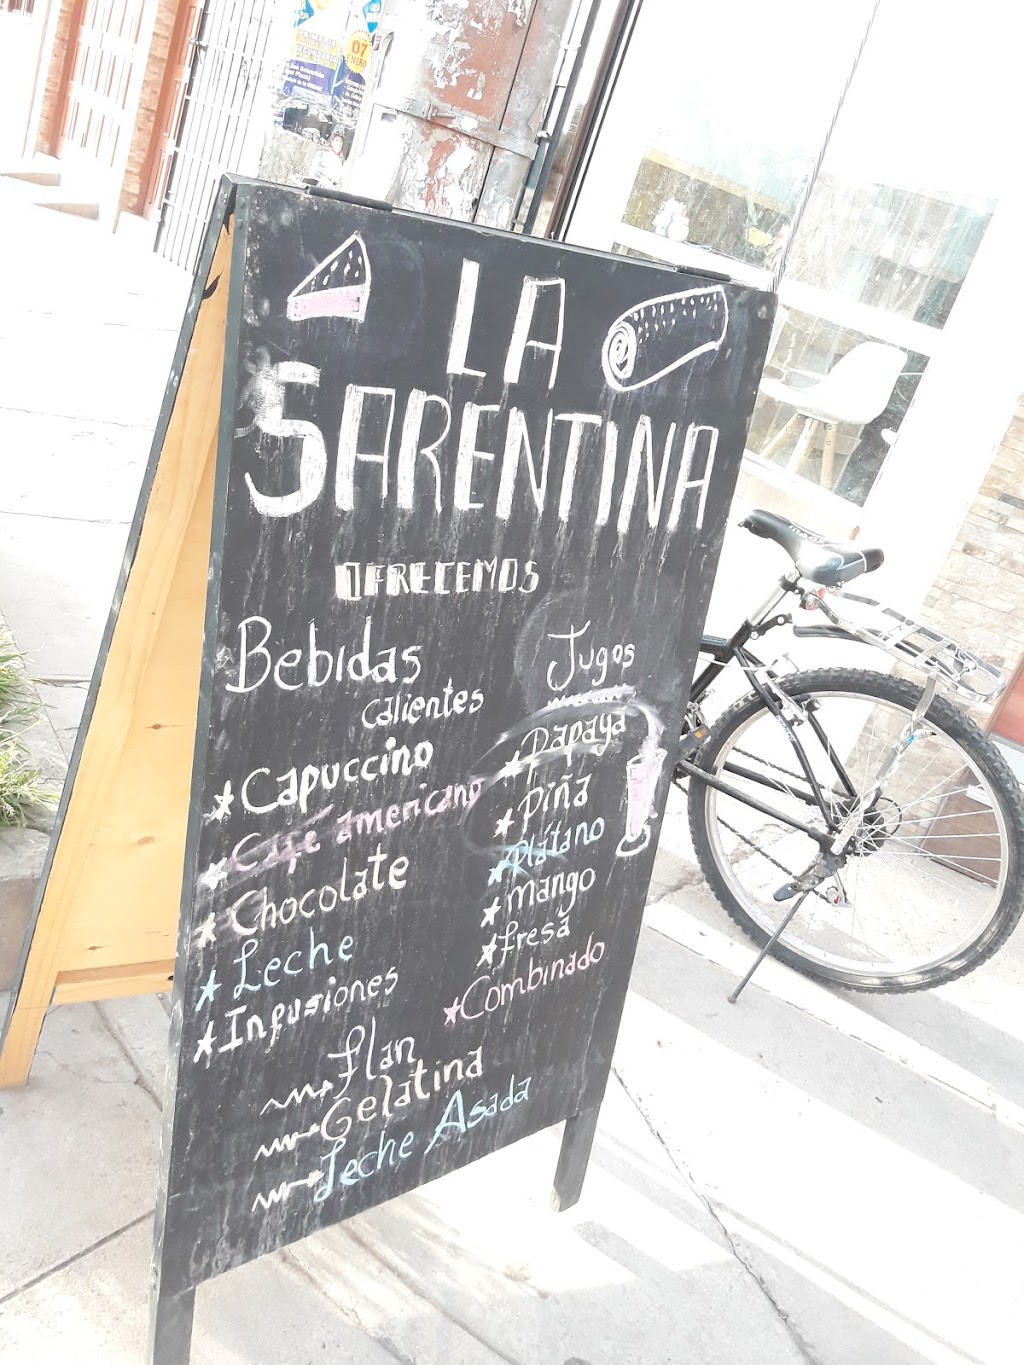 07
ENERO
LA
SARENTINA
OFRECEMOS
Bebidas
calientes
Capuccino
Café americano
Chocolate
Leche
Infusiones
Jugos
Papaya
Piña
Plátano
mango
fresa
Combinado
Flan
Gelatina
Leche Asada